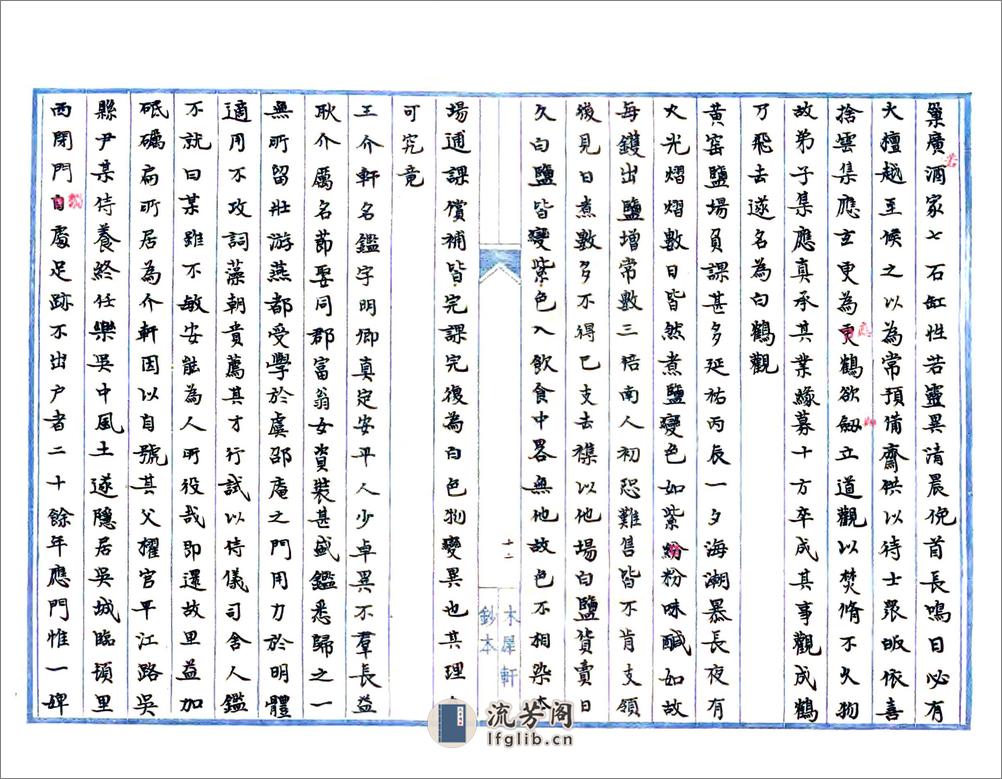 巢廣酒家七石缸性若靈異清晨俛首長鳴日必有
火檀越至候之以為常預備齋供以待士眾皈依喜
捨雲集應玄更為更鶴欲翎立道觀以焚脩不火物
故弟子集應真承其業緣募十方卒成其事觀成鶴
乃飛去遂名為白鶴觀
黃窑鹽場負課甚多延祐丙辰一夕海潮暴長夜有
火光熠熠數日皆然煮鹽變色如紫粉粉味醎如故
每鑊出鹽增常數三倍南人初恐難售皆不肯支領
後見日煮數多不得已支去襍以他場白鹽貨賣日
久白鹽皆變紫色入飲食中畧無他故色不相染本
十二
木犀軒
鈔本
場逋課償補皆完課完復為白色物變異也其理
可究竟
王介軒名鑑字明卿真定安平人少卓異不羣長益
耿介厲名節娶同郡富翁女資裝甚盛鑑悉歸之一
無所留壯游燕都受學於虞邵庵之門用力於明體
適用不攻詞藻朝貴薦其才行試以侍儀司舍人鑑
不就曰某雖不敏安能為人所役哉即還故里益加
砥礪扁所居為介軒因以自號其父擢官平江路吳
縣尹某侍養終任樂吳中風土遂隱居吳城臨頓里
西閉門自處足跡不出户者二十餘年應門惟一婢
流芳阁
lfglib.cn